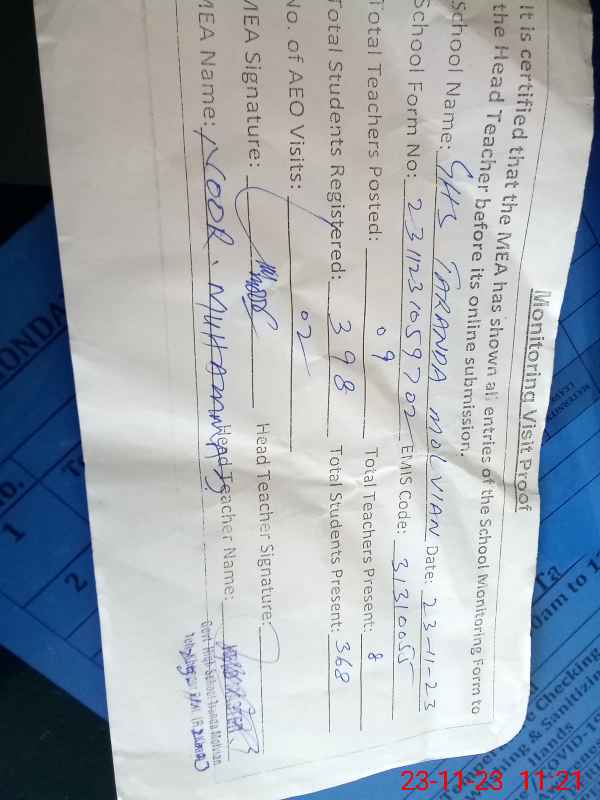 Monitoring Visit Proof
It is certified that the MEA has shown all entries of the School Monitoring Form to
the Head Teacher before its online submission.
School Name: GHS TARANDA MOLVIAN Date: 23-11-23
School Form No: 2311231059702 EMIS Code: 31310055
Total Teachers Posted: 09 Total Teachers Present: 8
Total Students Registered: 398 Total Students Present: 368
No. of AEO Visits: 02
MEA Signature: Head Teacher Signature:
MEA Name: NOOR. MUHAMMAD Head Teacher Name:
Govt High School
1
2
0am to 1
Checking
& Sanitizing
COVID-19
23-11-23 11:21